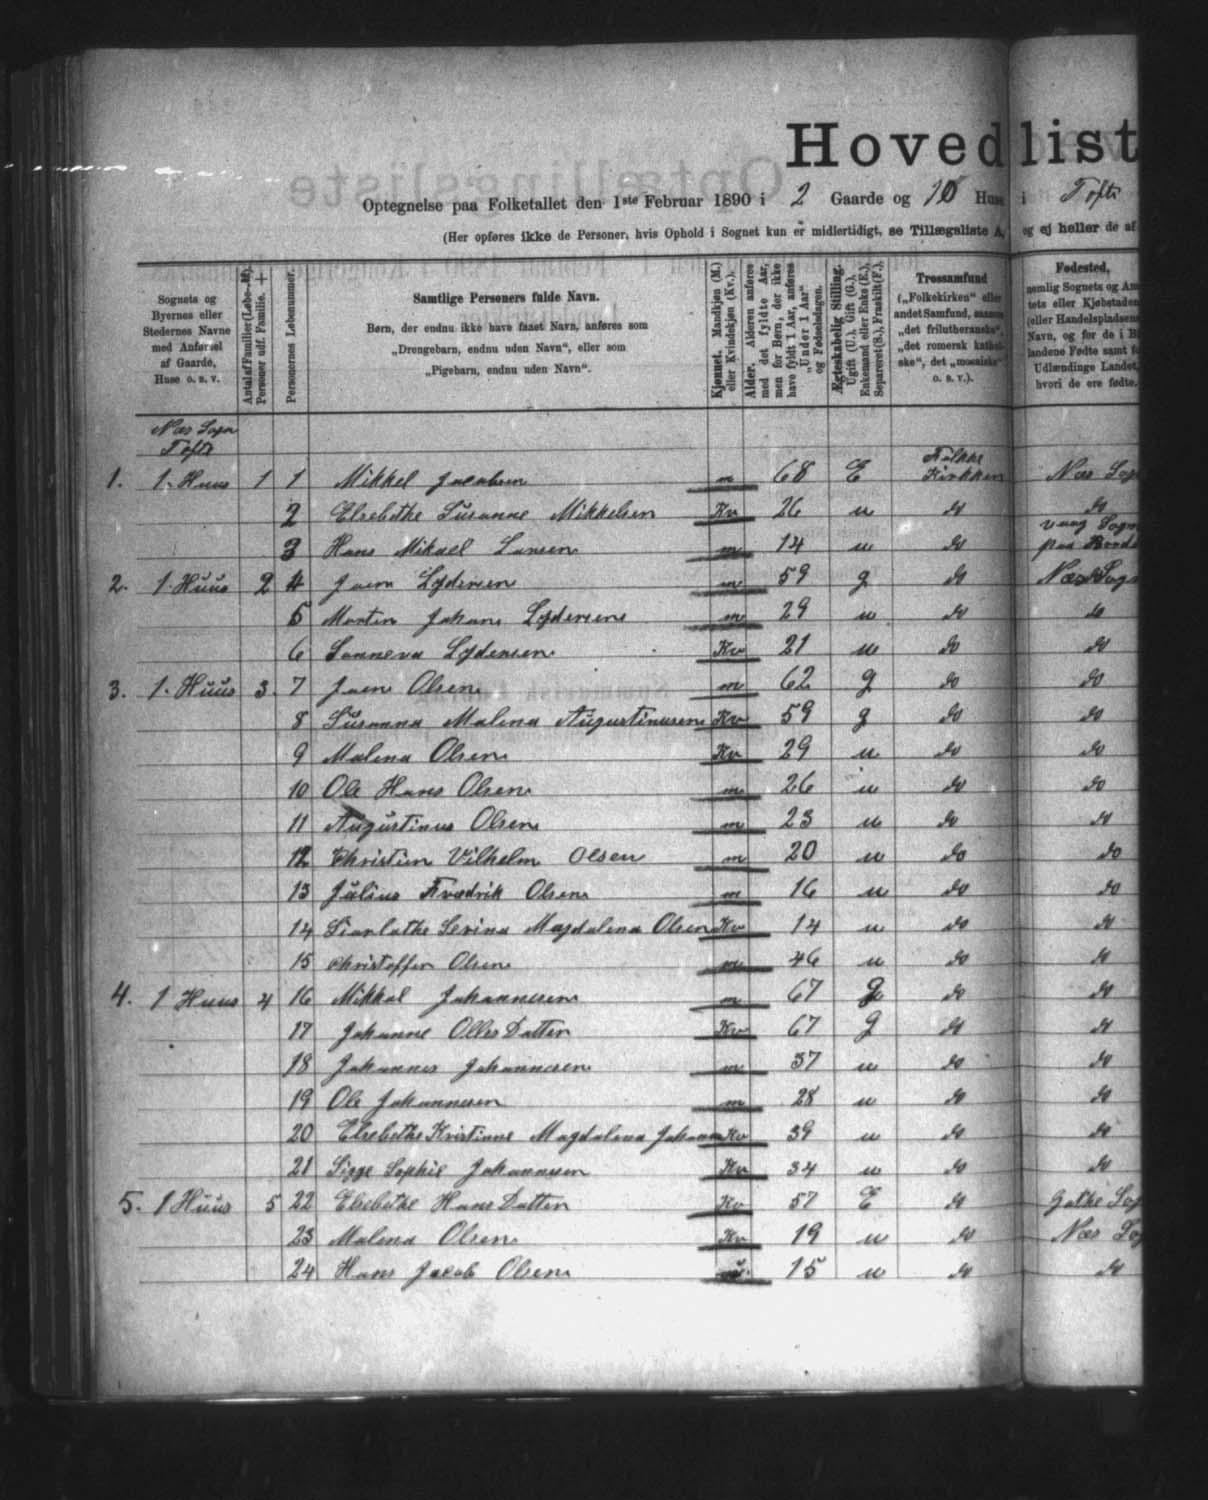 Hovedlist
Optegnelse paa Folketallet den 1ste Februar 1890 i 2 Gaarde og 10 Huse i Tofte
(Her opføres ikke de Personer, hvis Ophold i Sognet kun er midlertidigt, se Tillægsliste A, og ej heller de af
Sognets og Byernes eller Stedernes Navne med Anførsel af Gaarde, Huse o. s. v.
Antal af Familier (Løbe-№). + Personer udf. Familie.
Personernes Løbenummer.
Samtlige Personers fulde Navn.
Børn, der endnu ikke have faaet Navn, anføres som
„Drengebarn, endnu uden Navn“, eller som
„Pigebarn, endnu uden Navn“.
Kjønnet. Mandkjøn (M.) eller Kvindekjøn (Kv.).
Alder. Alderen anføres med det fyldte Aar, men for Børn, der ikke have fyldt 1 Aar, anføres „Under 1 Aar“ og Fødselsdagen.
Ægteskabelig Stilling. Ugift (U.), Gift (G.), Enkemand eller Enke (E.), Separeret (S.), Fraskilt (F.).
Trossamfund
(„Folkekirken“ eller andet Samfund, saasom „det frilutheranske“, „det romersk katholske“, det „mosaiske“ o. s. v.).
Fødested,
nemlig Sognets og Am
tets eller Kjøbstaden
(eller Handelspladsens
Navn, og for de i B
landene Fødte samt f
Udlændinge Landet,
hvori de ere fødte.
Næs Sogn
Tofte
1. 1. Huus 1 1 Mikkel Jacobsen m 68 E Folkekirkken Næs Sog
2 Elsebethe Susanne Mikkelsen Kv 26 u do do
3 Hans Mikael Larsen m 14 u do vaag Sogn paa Bord
2. 1. Huus 2 4 Joen Lydersen m 59 g do Næs Sogn
5 Morten Johan Lydersen m 29 u do do
6 Sanneva Lydersen Kv 21 u do do
3. 1. Huus 3. 7 Joen Olsen m 62 g do do
8 Susanna Malena Augustinusen Kv 59 g do do
9 Malena Olsen Kv 29 u do do
10 Ole Hans Olsen m 26 u do do
11 Augustinus Olsen m 23 u do do
12 Christian Vilhelm Olsen m 20 u do do
13 Julius Fredrik Olsen m 16 u do do
14 Serina Magdalena Olsen Kv 14 u do do
15 Christoffer Olsen m 46 u do do
4. 1 Huus 4 16 Mikkal Johannesen m 67 g do do
17 Johanne Olles Datter Kv 67 g do do
18 Johannes Johannesen m 37 u do do
19 Ole Johannesen m 28 u do do
20 Elsebethe Kristinne Magdalena Johann Kv 39 u do do
21 Sigge Sophie Johannesen Kv 34 u do do
5. 1 Huus 5 22 Elsebethe Hans Datter Kv 57 E do Gøthe Sog
23 Malena Olsen Kv 19 u do Næs So
24 Hans Jacob Olsen 15 u do do